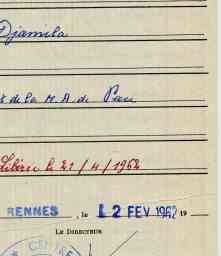 Djamila
de la M.A. de Pau
Libérée le 21/4/1962
RENNES, le 12 FEV 1962 19
LE DIRECTEUR